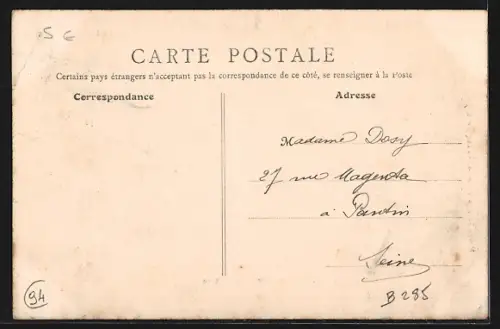 5 €
CARTE POSTALE
Certains pays étrangers n'acceptant pas la correspondance de ce côté, se renseigner à la Poste
Correspondance
Adresse
Madame Dosy
27 rue Magenta
à Pantin
Seine
94
B 285